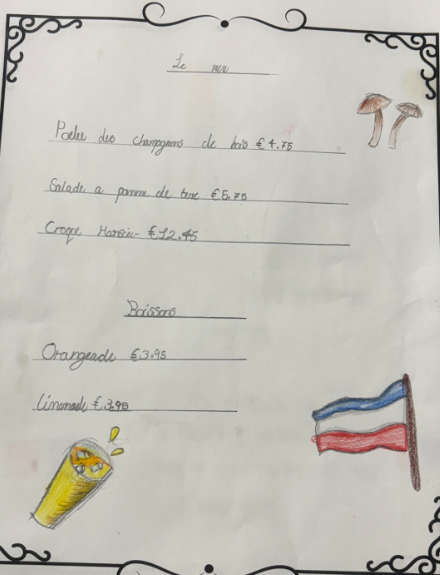 Le menu
Poelee des champignons de bois € 4.75
Salade a pomme de terre €5.75
Croque Monsieur €12.45
Boissons
Orangeade €3.95
Limonade €3.95